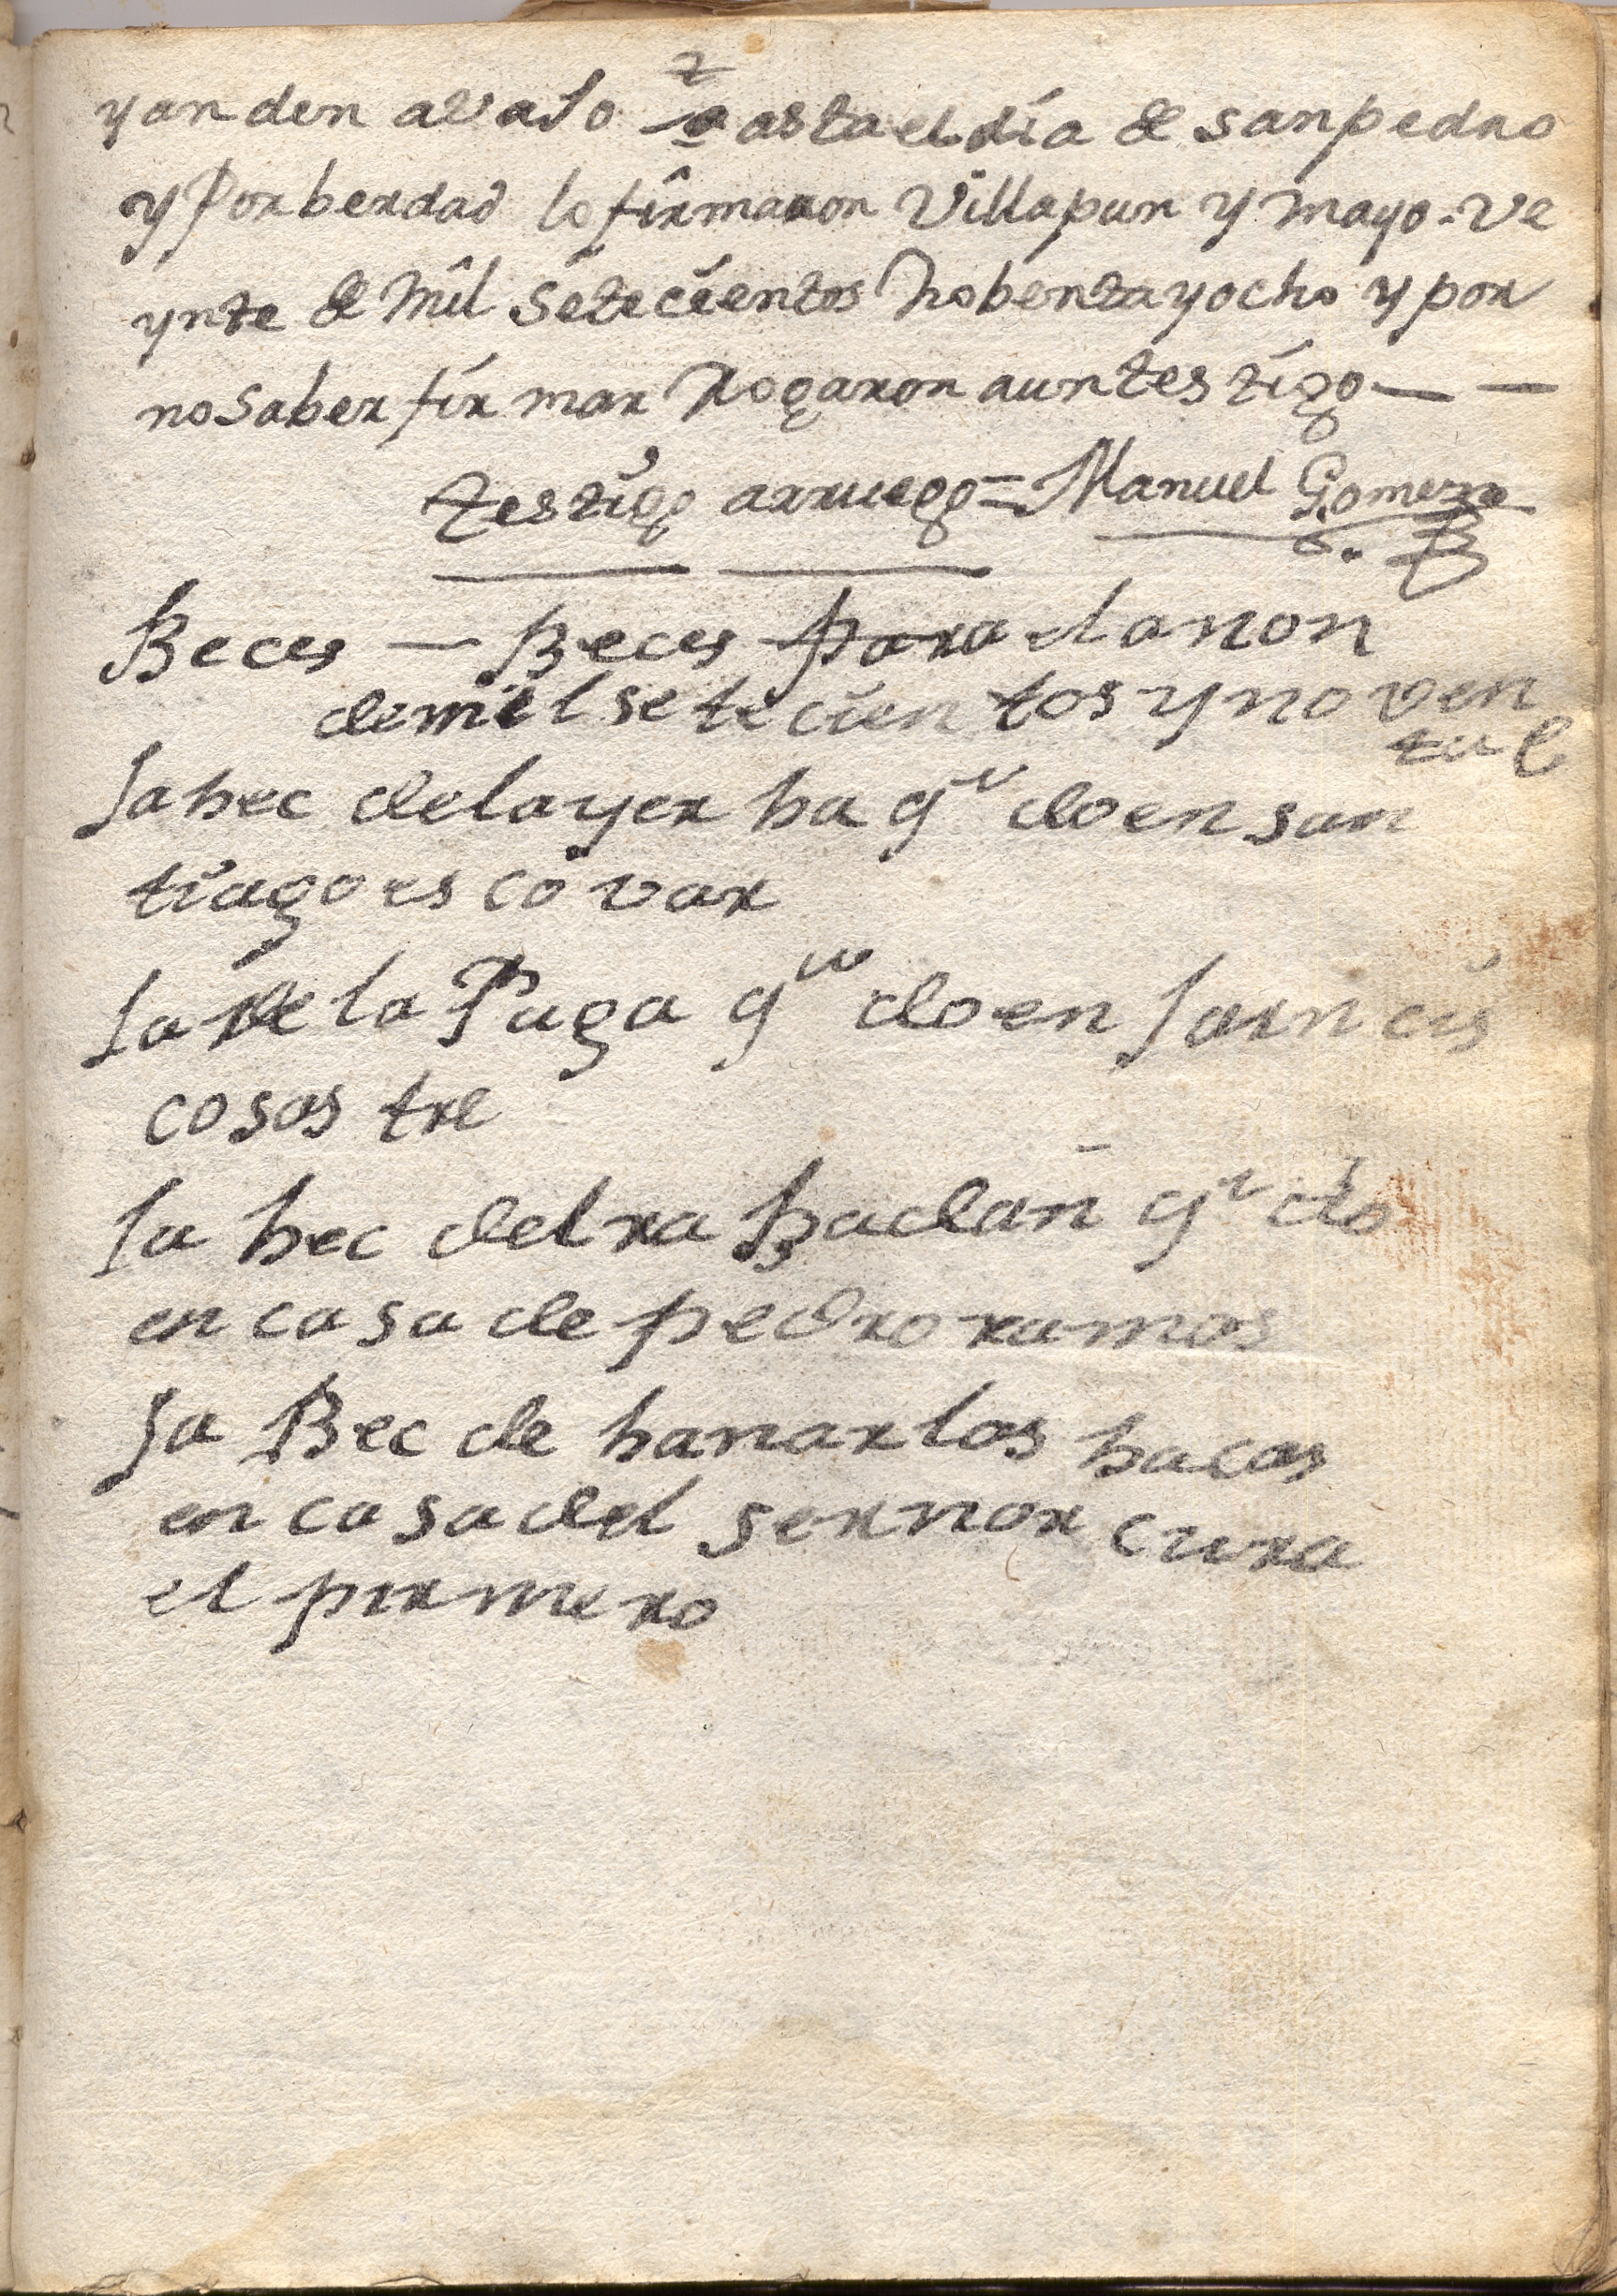 yanden avaJo asta el día de sanpedro
y Por berdad lo firmaron Villapun y mayo-ve
ynte de Mil Setecientos Nobenta yocho y por
no Saber firmar Rogaron aun testigo — —
testigo arruego = Manuel Gomez
Beces — Beces para elanon
de mil setecien tos y no ven
ta
la bec delayer ba q do en san
tiago es co var
la de la Paga q do en farn cis
co sas tre
la bec del ra badan q do
en casa de pedro ramos
la Bec de banar las bacas
en casa del sernor cura
el pirmero